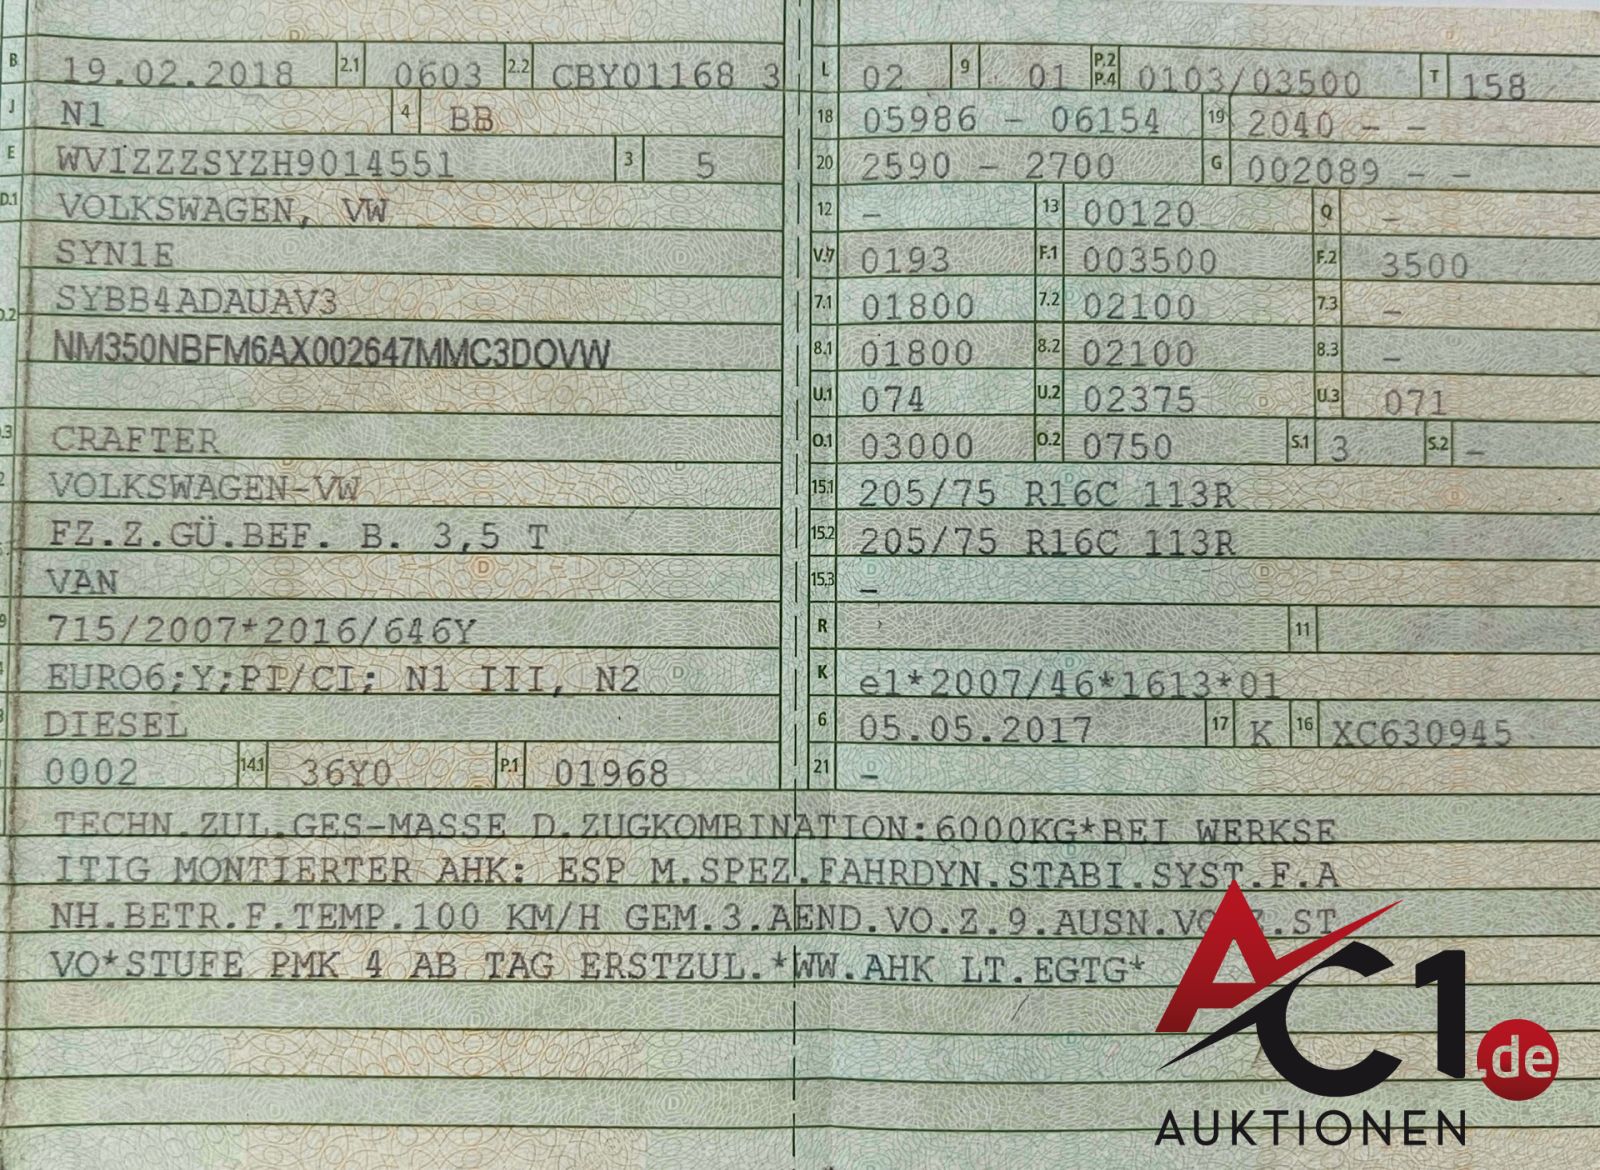 B 19.02.2018 2.1 0603 2.2 CBY01168 3
J N1 4 BB
E WV1ZZZSYZH9014551 3 5
D.1 VOLKSWAGEN, VW
SYN1E
SYBB4ADAUAV3
NM350NBFM6AX002647MMC3DOVW
CRAFTER
VOLKSWAGEN-VW
FZ.Z.GÜ.BEF. B. 3,5 T
VAN
715/2007*2016/646Y
EURO6;Y;PI/CI; N1 III, N2
DIESEL
0002 14.1 36Y0 P.1 01968
L 02 9 01 P.2 P.4 0103/03500 T 158
18 05986 - 06154 19 2040 - -
20 2590 - 2700 G 002089 - -
12 - 13 00120 Q -
V.7 0193 F.1 003500 F.2 3500
7.1 01800 7.2 02100 7.3 -
8.1 01800 8.2 02100 8.3 -
U.1 074 U.2 02375 U.3 071
O.1 03000 O.2 0750 S.1 3 S.2 -
15.1 205/75 R16C 113R
15.2 205/75 R16C 113R
15.3 -
R 11
K e1*2007/46*1613*01
6 05.05.2017 17 K 16 XC630945
21 -
TECHN.ZUL.GES-MASSE D.ZUGKOMBINATION:6000KG*BEI WERKSE
ITIG MONTIERTER AHK: ESP M.SPEZ.FAHRDYN.STABI.SYST.F.A
NH.BETR.F.TEMP.100 KM/H GEM.3.AEND.VO.Z.9.AUSN.VO.Z.ST
VO*STUFE PMK 4 AB TAG ERSTZUL.*WW.AHK LT.EGTG*
AC1.de
AUKTIONEN